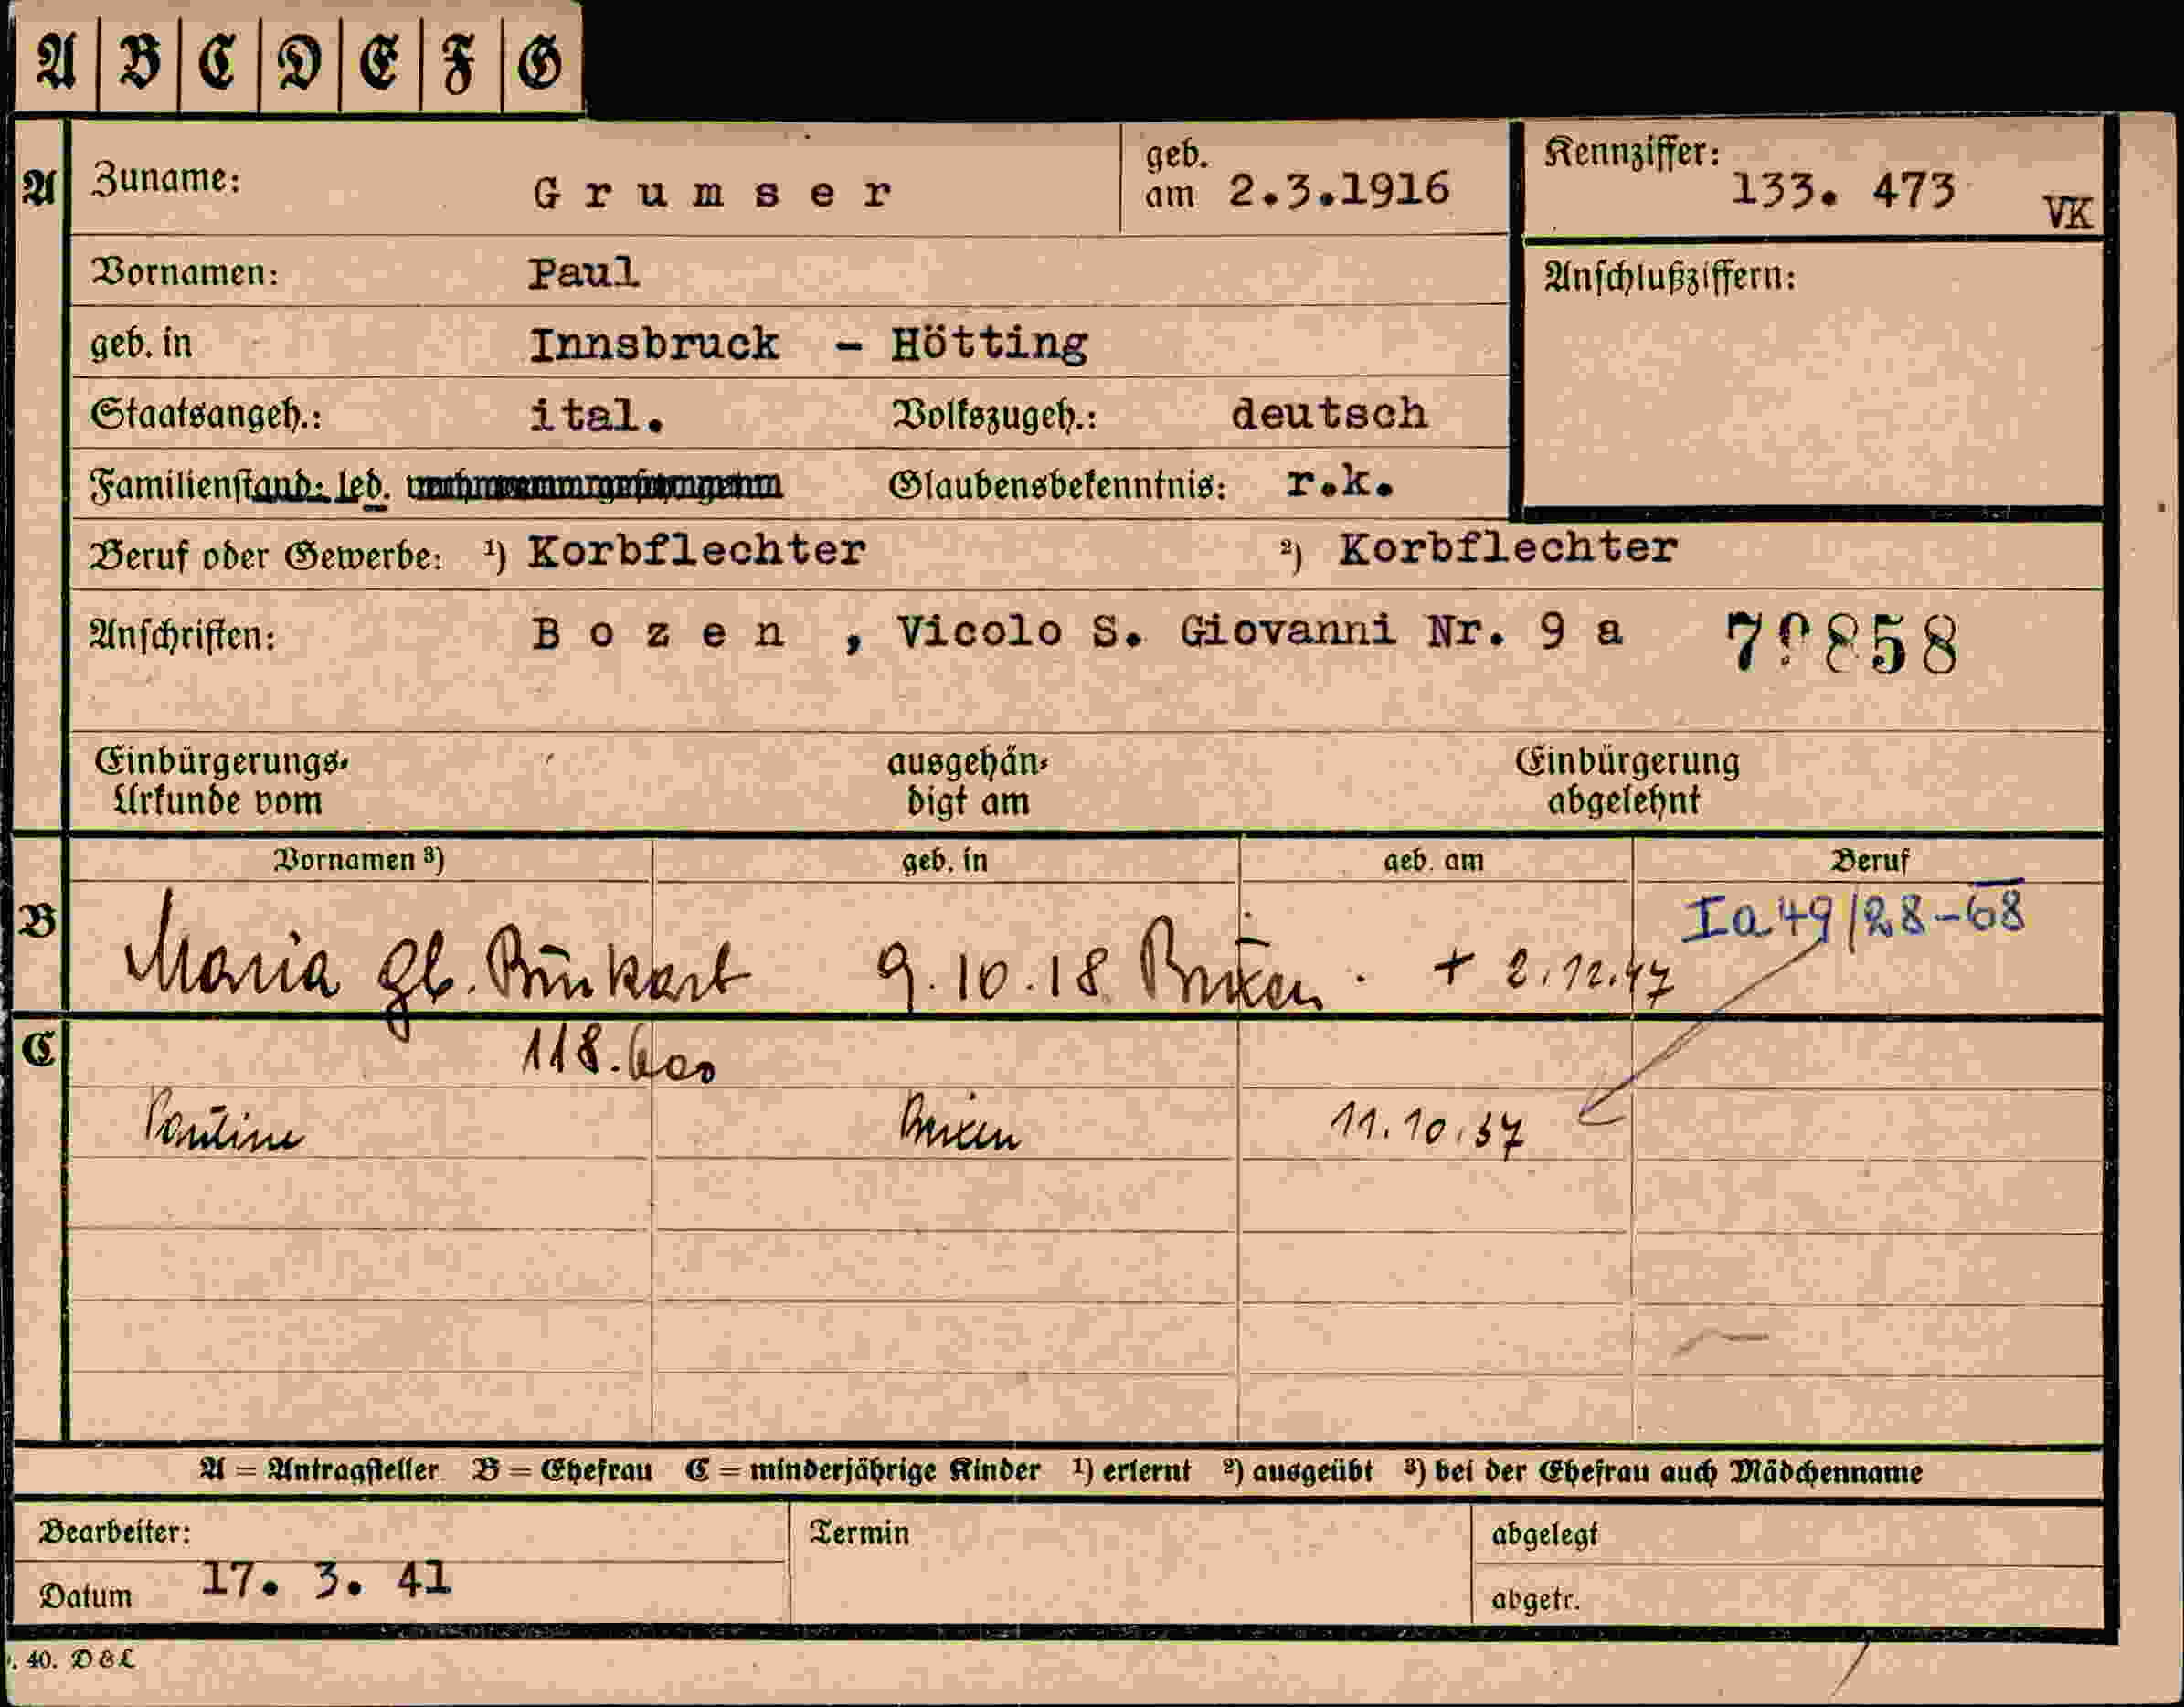 A B C D E F G
A Zuname: Grumser geb. am 2.3.1916 Kennziffer: 133. 473 VK
Vornamen: Paul Anschlußziffern:
geb. in Innsbruck - Hötting
Staatsangeh.: ital. Volkszugeh.: deutsch
Familienstand: led. Glaubensbekenntnis: r.k.
Beruf oder Gewerbe: ¹) Korbflechter ²) Korbflechter
Anschriften: Bozen, Vicolo S. Giovanni Nr. 9 a
Einbürgerungs- ausgehän- Einbürgerung
Urkunde vom digt am abgelehnt
Vornamen ³) geb. in geb. am Beruf
Ia 49/28-68
B Maria gb. 9.10.18 Brixen. + 2.12.47
C 118.600
Pauline Brixen 11.10.37
A = Antragsteller B = Ehefrau C = minderjährige Kinder ¹) erlernt ²) ausgeübt ³) bei der Ehefrau auch Mädchenname
Bearbeiter: Termin abgelegt
Datum 17. 3. 41 abgetr.
. 40. D & L